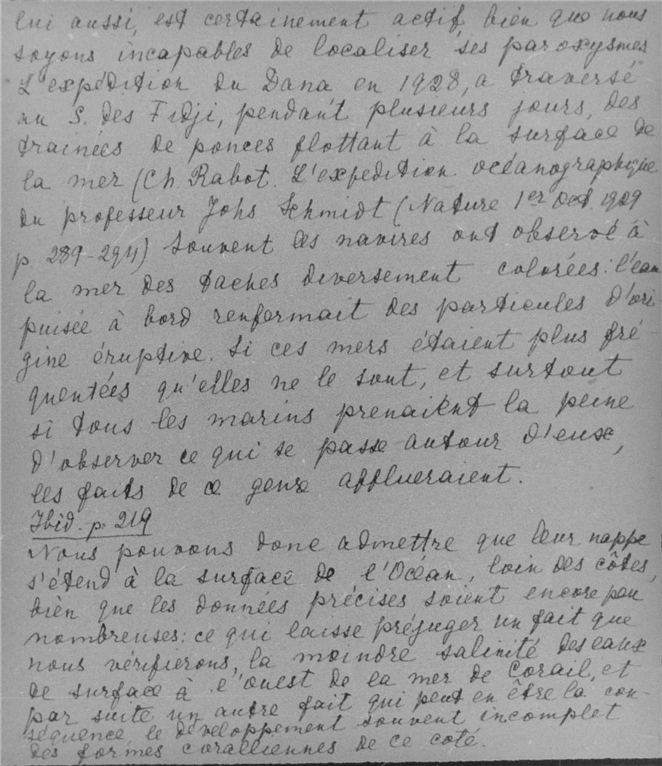 lui aussi, est certainement actif, bien que nous
soyons incapables de localiser ses paroxysmes
L'expédition du Dana en 1928, a traversé
au S. des Fidji, pendant plusieurs jours, des
trainées de ponces flottant à la surface de
la mer (Ch. Rabot. L'expedition océanographique
du professeur Johs Schmidt (Nature 1er Oct. 1929
p. 289-294) Souvent les navires ont observé à
la mer des taches diversement colorées: l'eau
puisée à bord renfermait des particules d'ori
gine éruptive. Si ces mers étaient plus fré
quentées qu'elles ne le sont, et surtout
si tous les marins prenaient la peine
d'observer ce qui se passe autour d'eux,
les faits de ce genre afflueraient.
Ibid. p. 219
Nous pouvons donc admettre que leur nappe
s'étend à la surface de l'Océan, loin des côtes,
bien que les données précises soient encore peu
nombreuses: ce qui laisse préjuger un fait que
nous vérifierons, la moindre salinité des eaux
de surface à l'ouest de la mer de Corail, et
par suite un autre fait qui peut en être la con-
séquence le développement souvent incomplet
des formes coralliennes de ce coté.